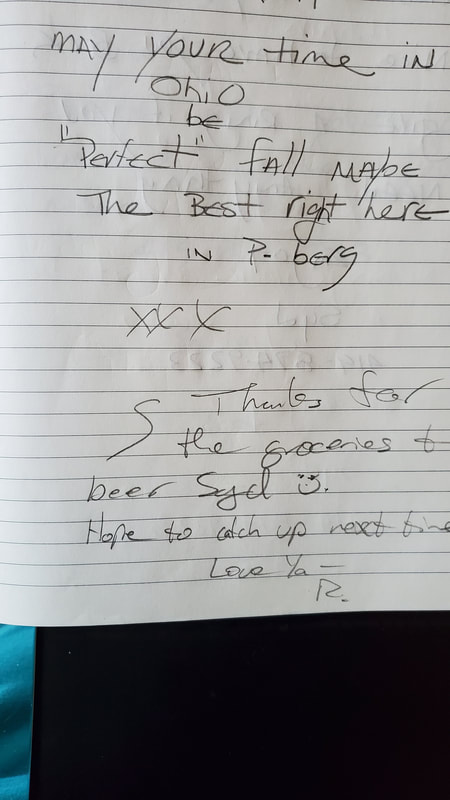 MAY YOUR time IN
OhiO
be
"Perfect" fALL MAybE
The BEST right herE
IN P- berg
XXX
S Thanks for
the groceries &
beer Syd ☺.
Hope to catch up next time
Love Ya —
R.